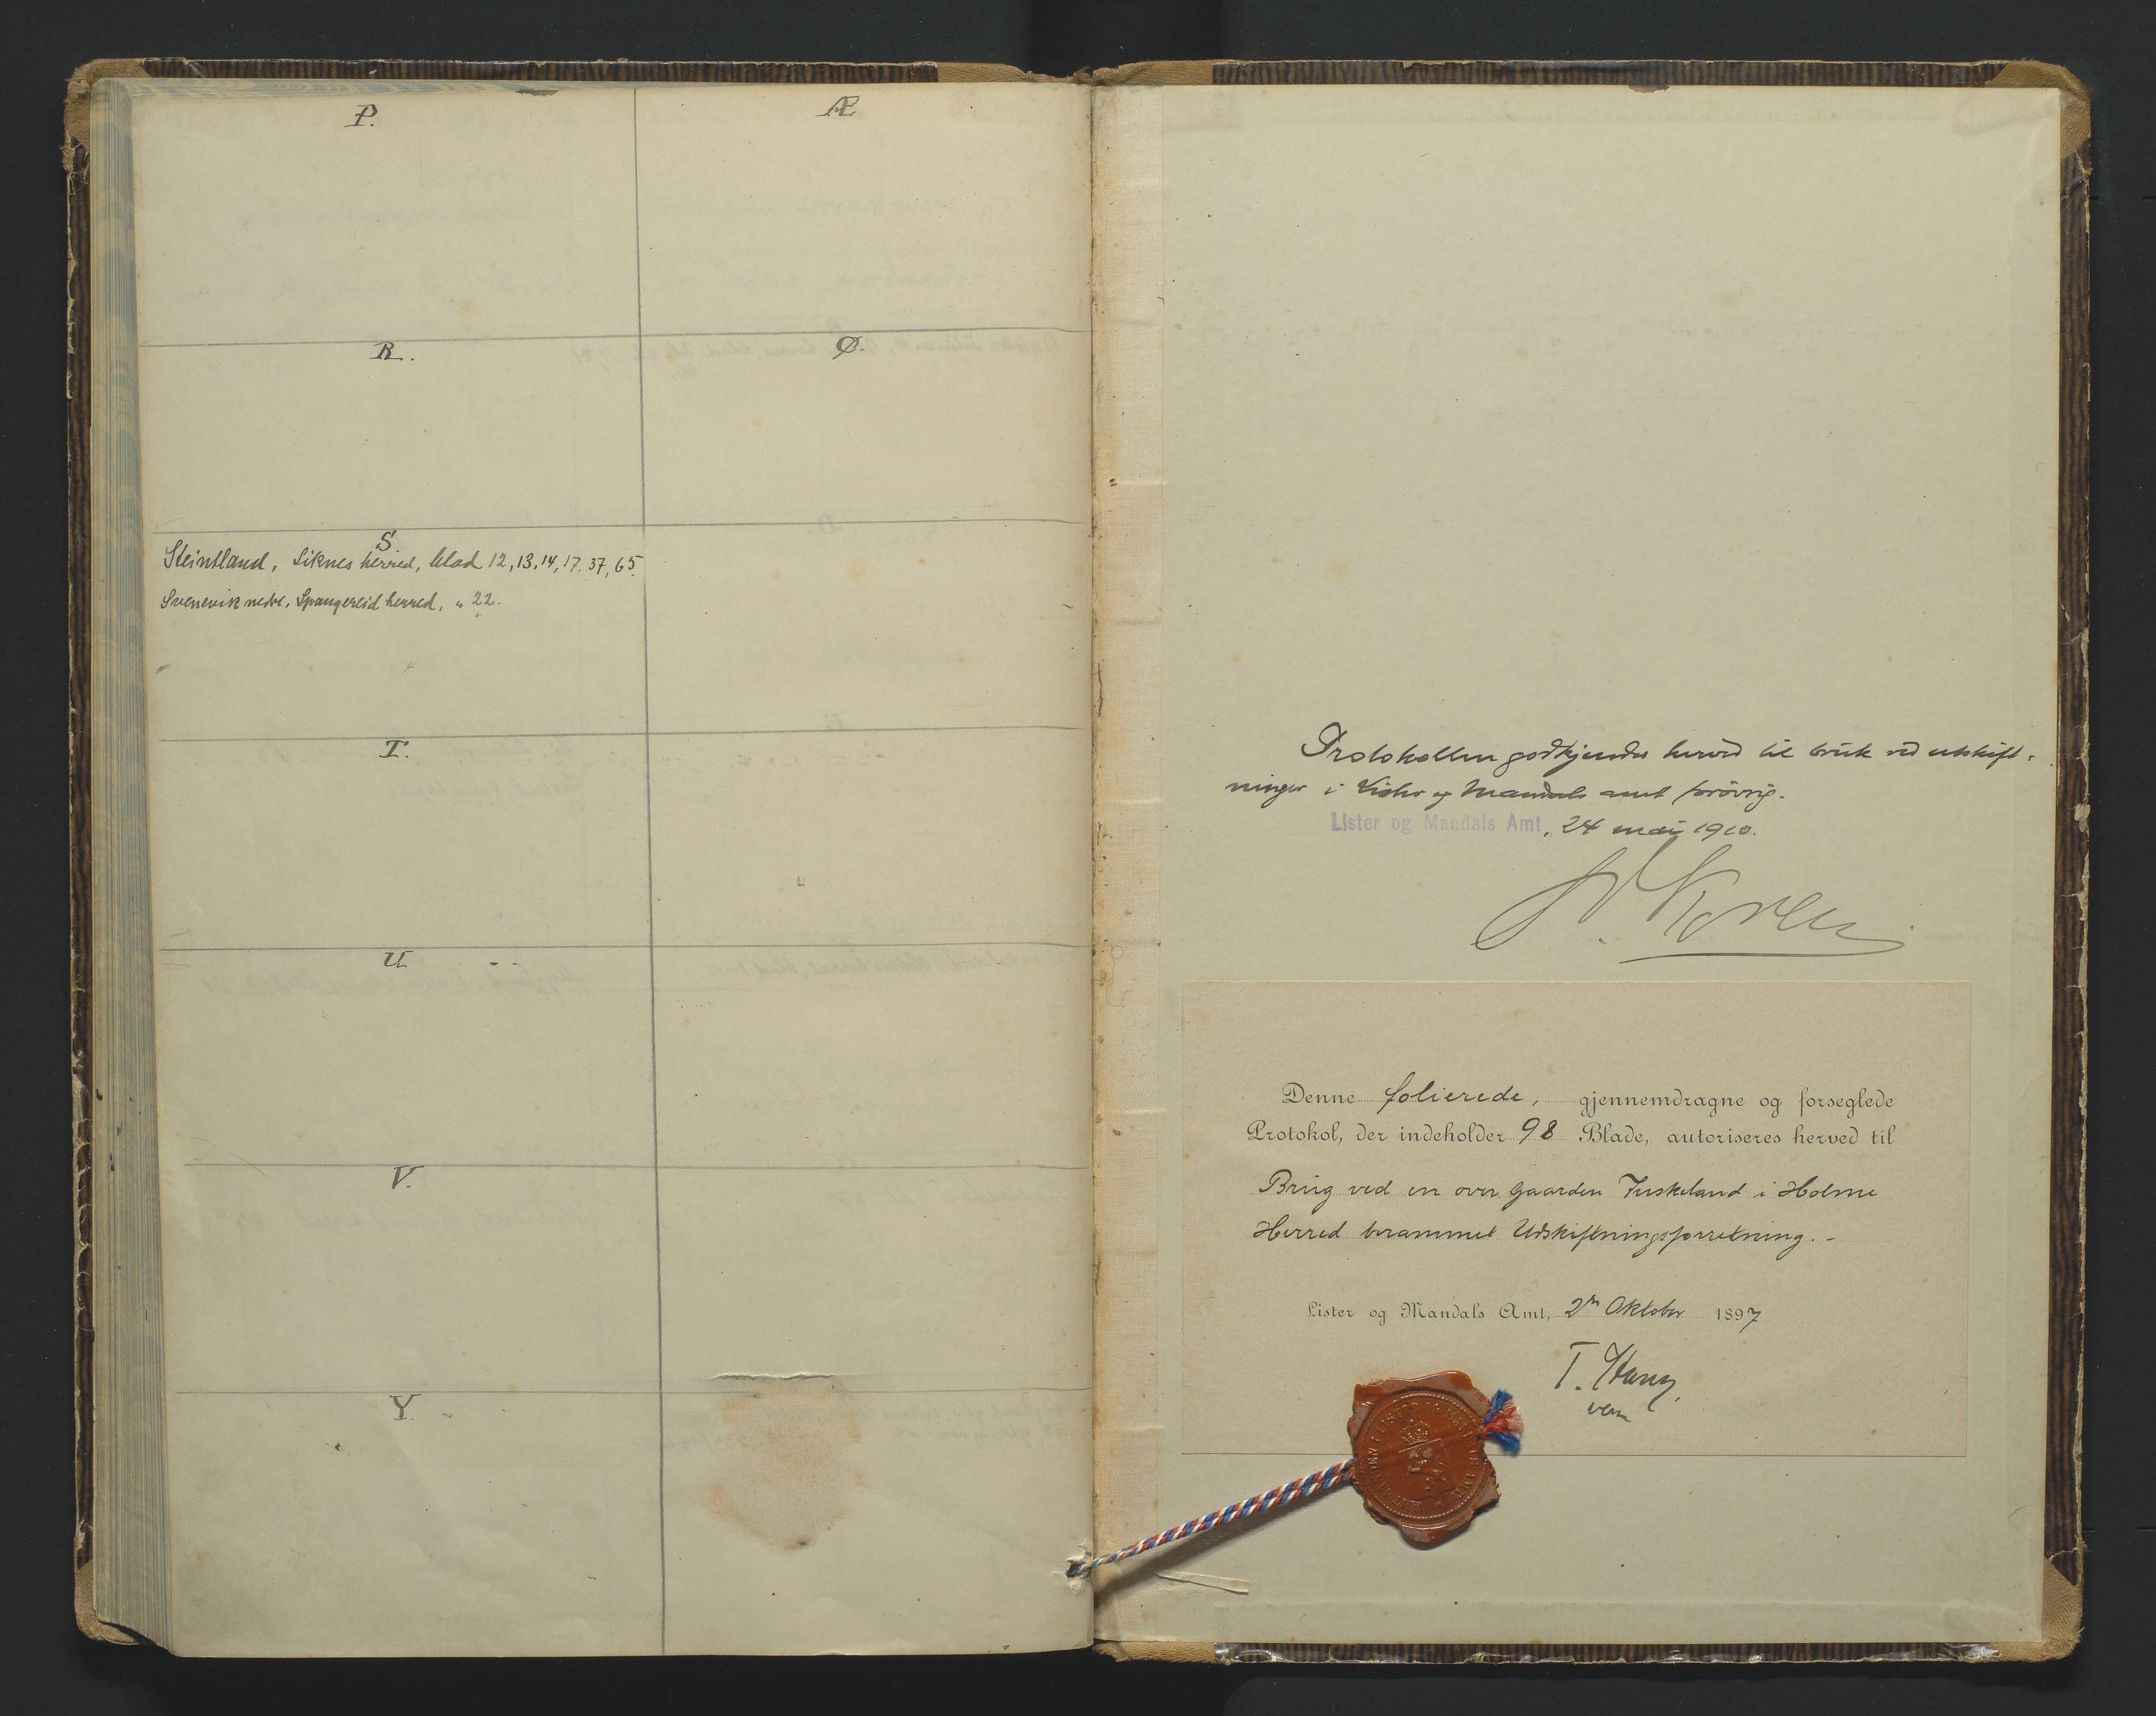 P.
Æ
R.
Ø.
S
Steintland, Siknes herred, blad 12, 13, 14, 17. 37, 65.
Svenevik nedre, Spangereid herred, " 22.
T.
U
V.
Y.
Protokollen godkjendes herved til bruk ved utskift-
ninger i Lister og Mandals amt forøvrig.
Lister og Mandals Amt, 24 mai 1910.
Koren
Denne folierede, gjennemdragne og forseglede
Protokol, der indeholder 98 Blade, autoriseres herved til
Brug ved en over Gaarden Tuskeland i Holme
Herred berammet Udskiftningsforretning. -
Lister og Mandals Amt, 2den Oktober 1897
T. Stang